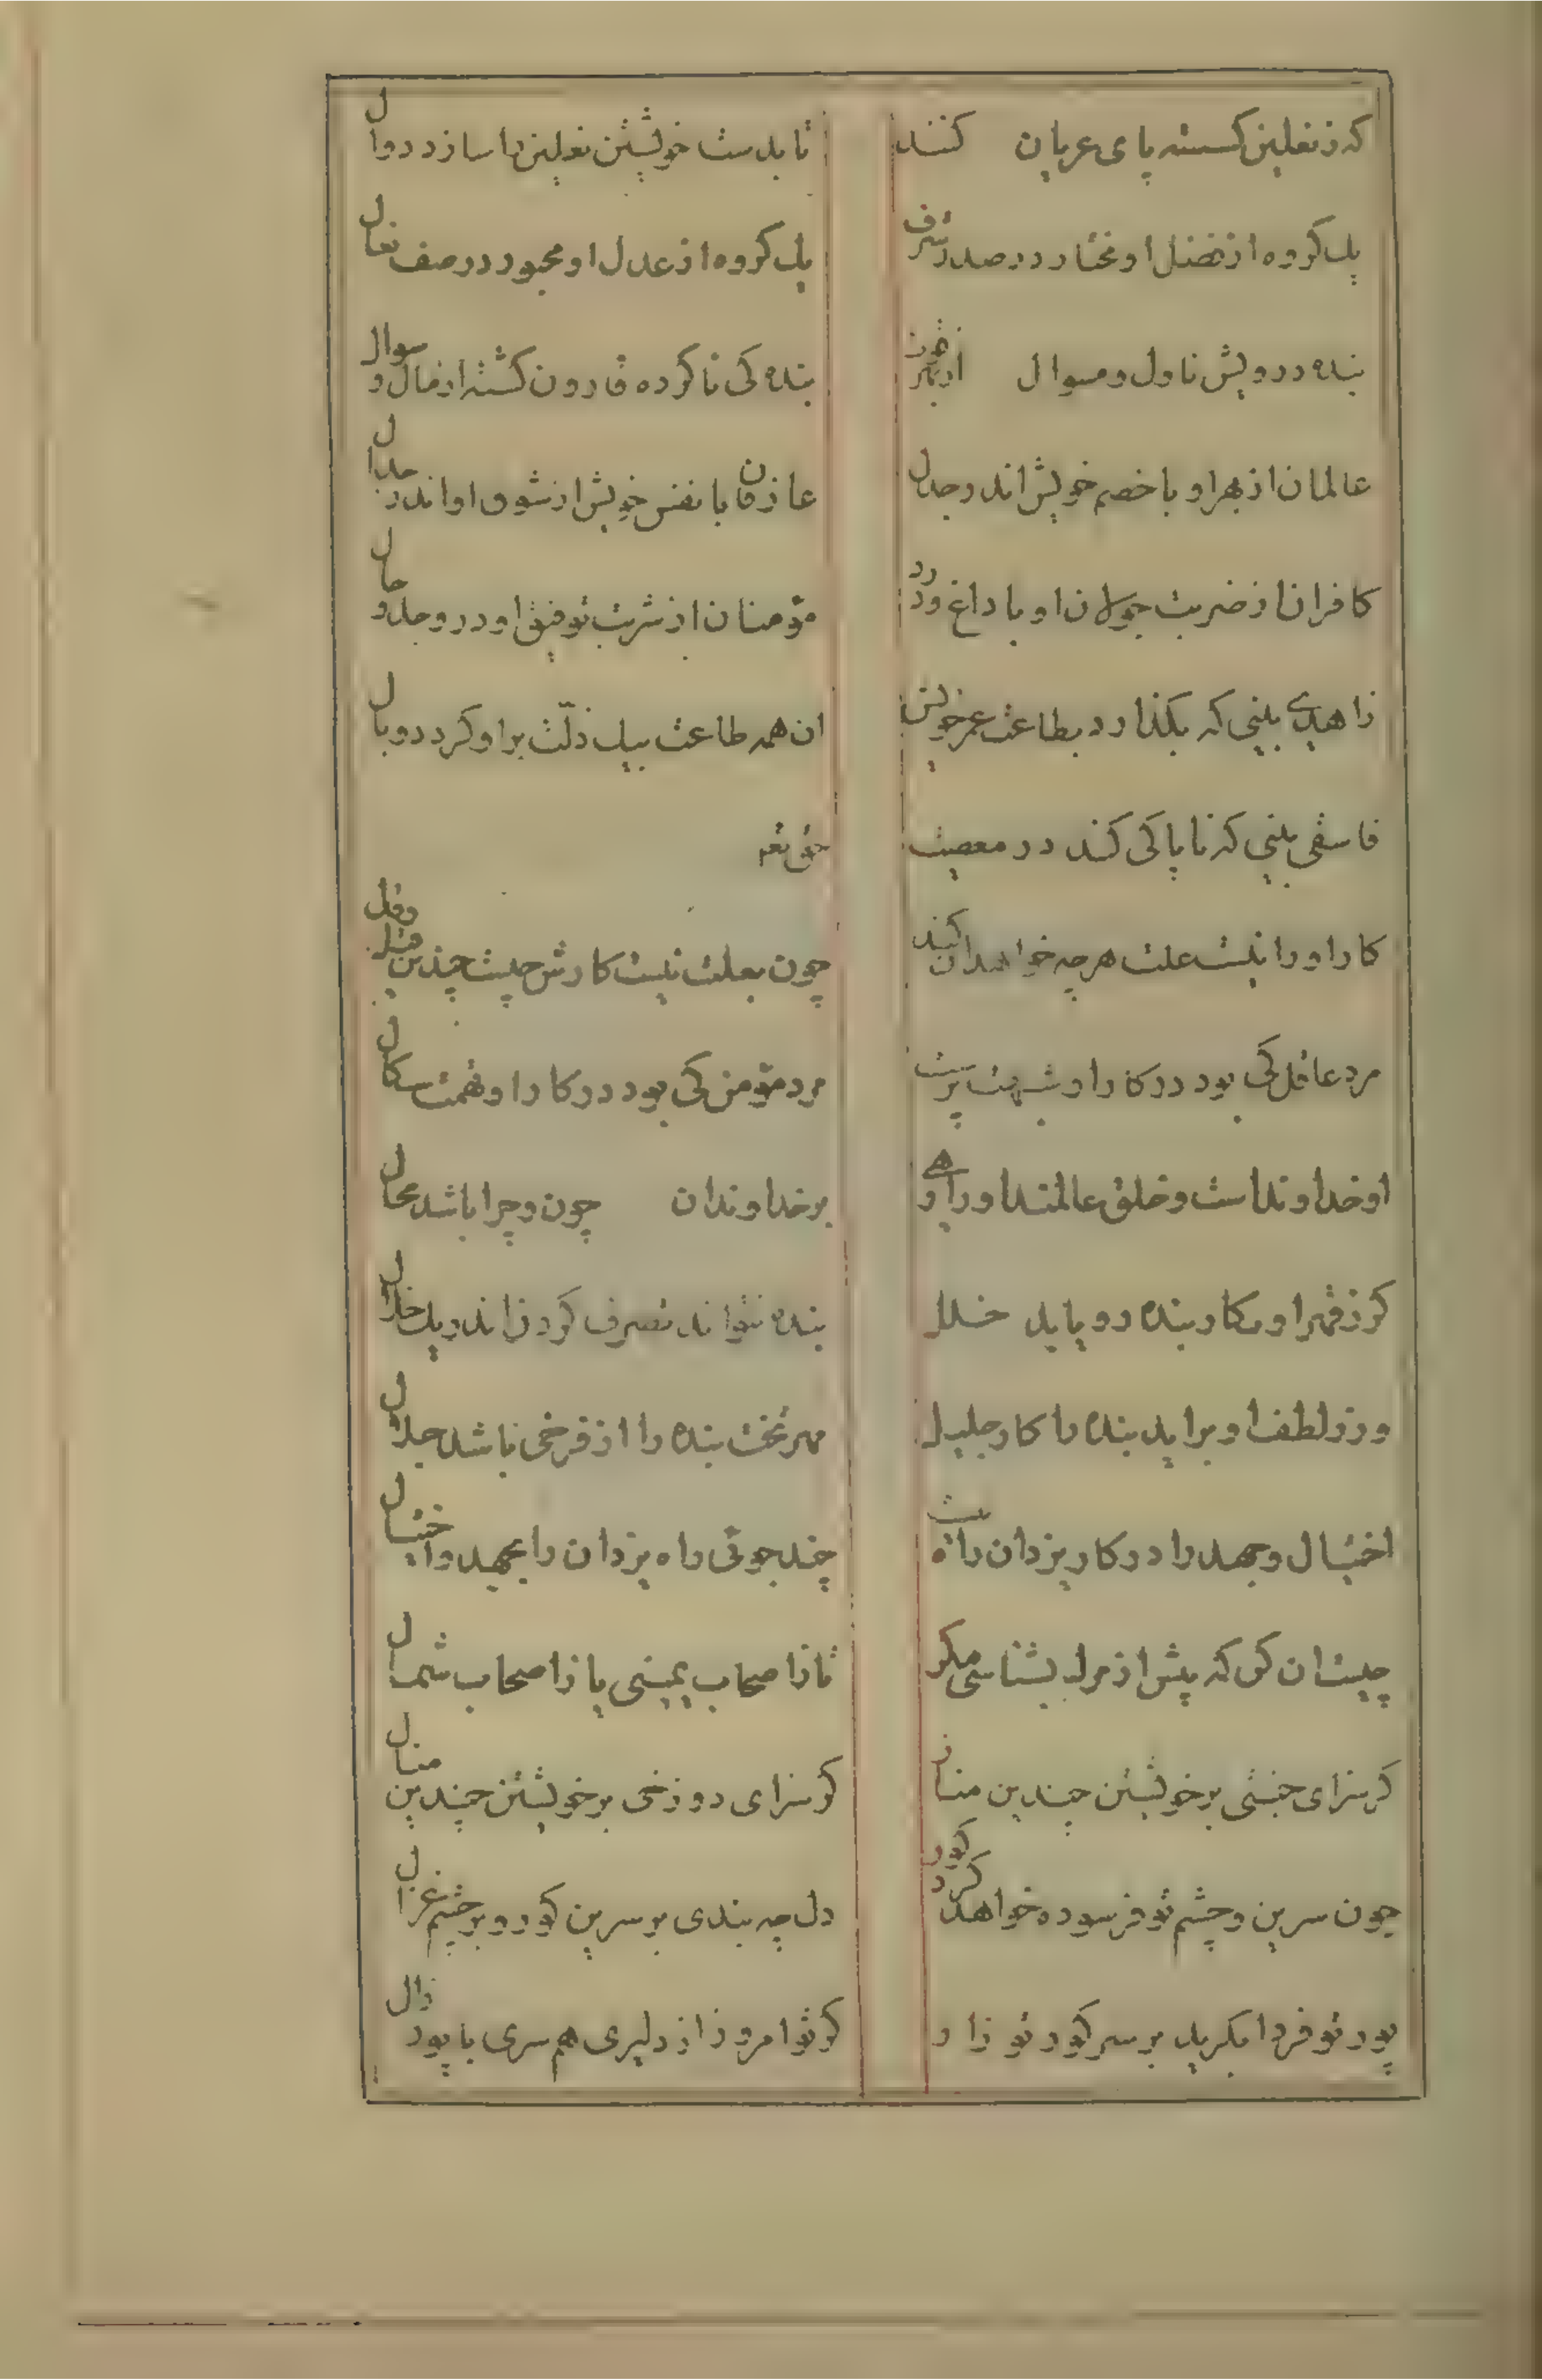 که ز نعلین کسسته پای عریان کنند
تا بدست خویشتن نعلین را سازد دوال
یک کروه از فضل او مختار در صدر شرف
یک کروه از عدل او مجبور در صف نعال
بنده درویش ناول و سوال
بنده کی نا کرده قارون کشته از مال و سوال
عالمان از بهر او با خصم خویش اندر جدال
عارفان با نفس خویش از شوق او اندر جدال
کافران از ضربت او با داغ و درد
مؤمنان از شربت توفیق او در وجد و حال
زاهدی بینی که بکذارد بطاعت عمر خویش
ان همه طاعت بیک ذلّت بر او کردد وبال
فاسقی بینی که ناپاکی کند در معصیت
حق تعه
کار او را نیست علت هرچه خواهد ان کند
چون بعلت نیست کارش چیست چندین قیل وقال
مرد عاقل کی بود در کار او شبهت پرست
مرد مؤمن کی بود در کار او تهمت سکال
او خداوند است و خلق عالمند او را رهی
بر خداوندان چون و چرا باشد محال
کر ز قهر او بکار بنده در یابد خلل
بنده نتواند تصرف کرد زاندر یک خلال
ور ز لطف او براید بنده را کار جلیل
مهر تخت بنده را از فرخی باشد جلال
احتیال و جهد را در کار یزدان راه نیست
چند جوئی راه یزدان را بجهد و احتیال
چیست ان کن که پیش از مرک بشناسی مکر
تا ز اصحاب یمینی یا ز اصحاب شمال
کر سزای جنتی بر خویشتن چندین مناز
کر سزای دوزخی بر خویشتن چندین منال
چون سرین و چشم تو فرسوده خواهد کرد کور
دل چه بندی بر سرین کور و بر چشم غزال
پور تو فردا بکرید بر سر کور تو زار
کر تو امروز از دلیری هم سری با پور زال